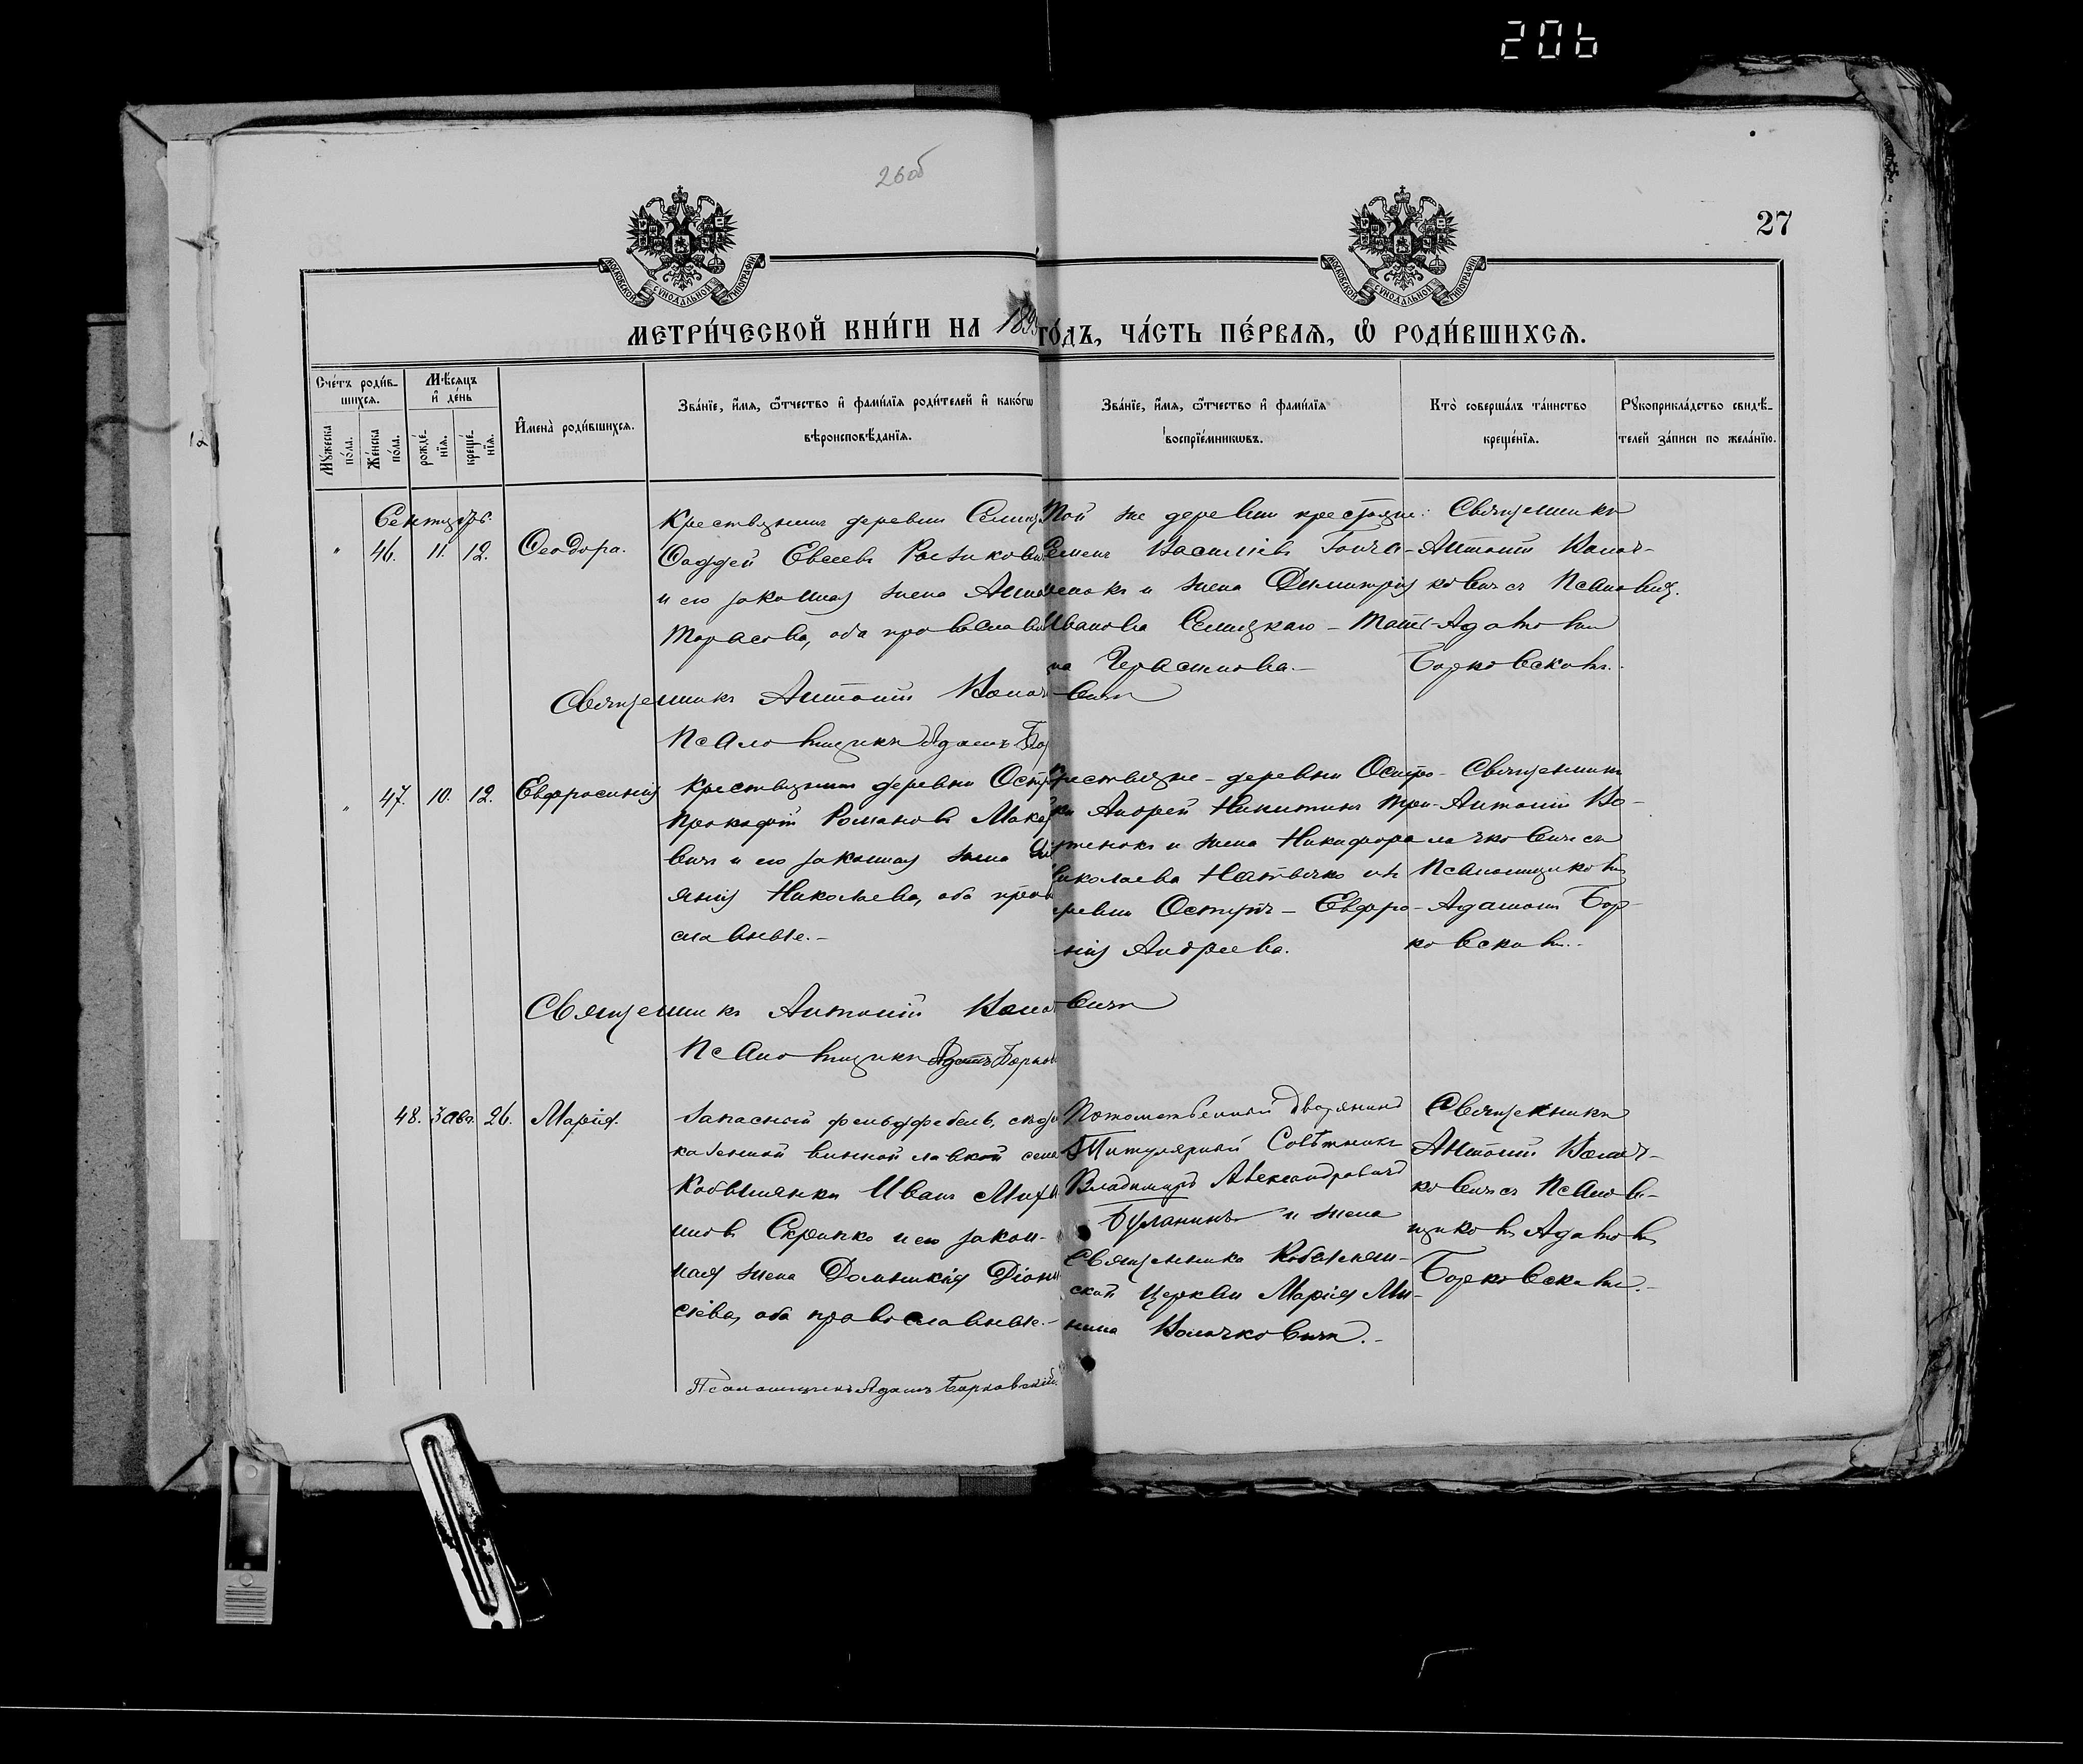 206
26об
27
МОСКОВСКОЙ СУНОДАЛЬНОЙ ТИПОГРАФІИ
МОСКОВСКОЙ СУНОДАЛЬНОЙ ТИПОГРАФІИ
МЕТРИ́ЧЕСКОЙ КНИ́ГИ НА 189
ГО́ДЪ, ЧА́СТЬ ПЕ́РВАЯ, Ѡ҆ РОДИ́ВШИХСЯ.
Сче́тъ роди́в-
шихся.
Му́жеска по́ла.
Же́нска по́ла.
Мѣ́сяцъ и҆ де́нь
рожде́-нїя.
креще́-нїя.
И҆мена̀ роди́вшихся.
Зва́нїе, и҆́мя, ѻ҆́тчество и҆ фами́лїя роди́телей и҆ како́гѡ
вѣроисповѣ́данїя.
Зва́нїе, и҆́мя, ѻ҆́тчество и҆ фами́лїя
воспрїе́мникѡвъ.
Кто̀ соверша́лъ та́инство
креще́нїя.
Рꙋкоприкла́дство свидѣ́-
телей за́писи по жела́нїю.
Сентябрь.
" 46. 11. 12. Ѳеодора.
Крестьянинъ деревни
Ѳаддей Евсеевъ
и его законная жена Анна
Тарасова, оба православн
Той же деревни крестьяне:
Семенъ Васильевъ Гонча-
и жена Димитрія
Иванова Семицкаго - Татья-
на Герасимова.-
Священникъ
Антоній Колач-
ковичъ съ Псаломщ.
Адамомъ
Борковскимъ.
Священникъ Антоній Колач
вичъ
Псаломщикъ Адамъ Бор
" 47. 10. 12. Евфросинія
Крестьянинъ деревни Остр
Прокофій Романовъ Мака
вичъ и его законная жена
Николаева, оба право
славные.-
Крестьяне - деревни Остро-
Андрей Никитинъ Три-
и жена Никифора
Николаева
Оструъ - Евфро-
нія Андреева.
Священникъ
Антоній Ко-
лачковичъ съ
Псаломщикомъ
Адамомъ Бор-
ковскимъ.-
Священникъ Антоній Колач
вичъ
Псаломщикъ Адамъ Борков
48. 3 авг. 26. Марія.
Запасный фельдфебель, сидѣ
казенной винной лавкой села
Кобылянки Иванъ Миха
Скрипко и его закон-
ная жена Домникія Діони
сіева, оба православные.-
Потомственный Дворянинъ
Титулярный Совѣтникъ
Владиміръ Александровичъ
Бурланинъ и жена
Священника Кобылян-
ской церкви Марія Ми-
нина Колачковичъ.-
Священникъ
Антоній Колач-
ковичъ съ Псаломъ-
щикомъ Адамомъ
Борковскимъ.-
Псаломщикъ Адамъ Борковскій.